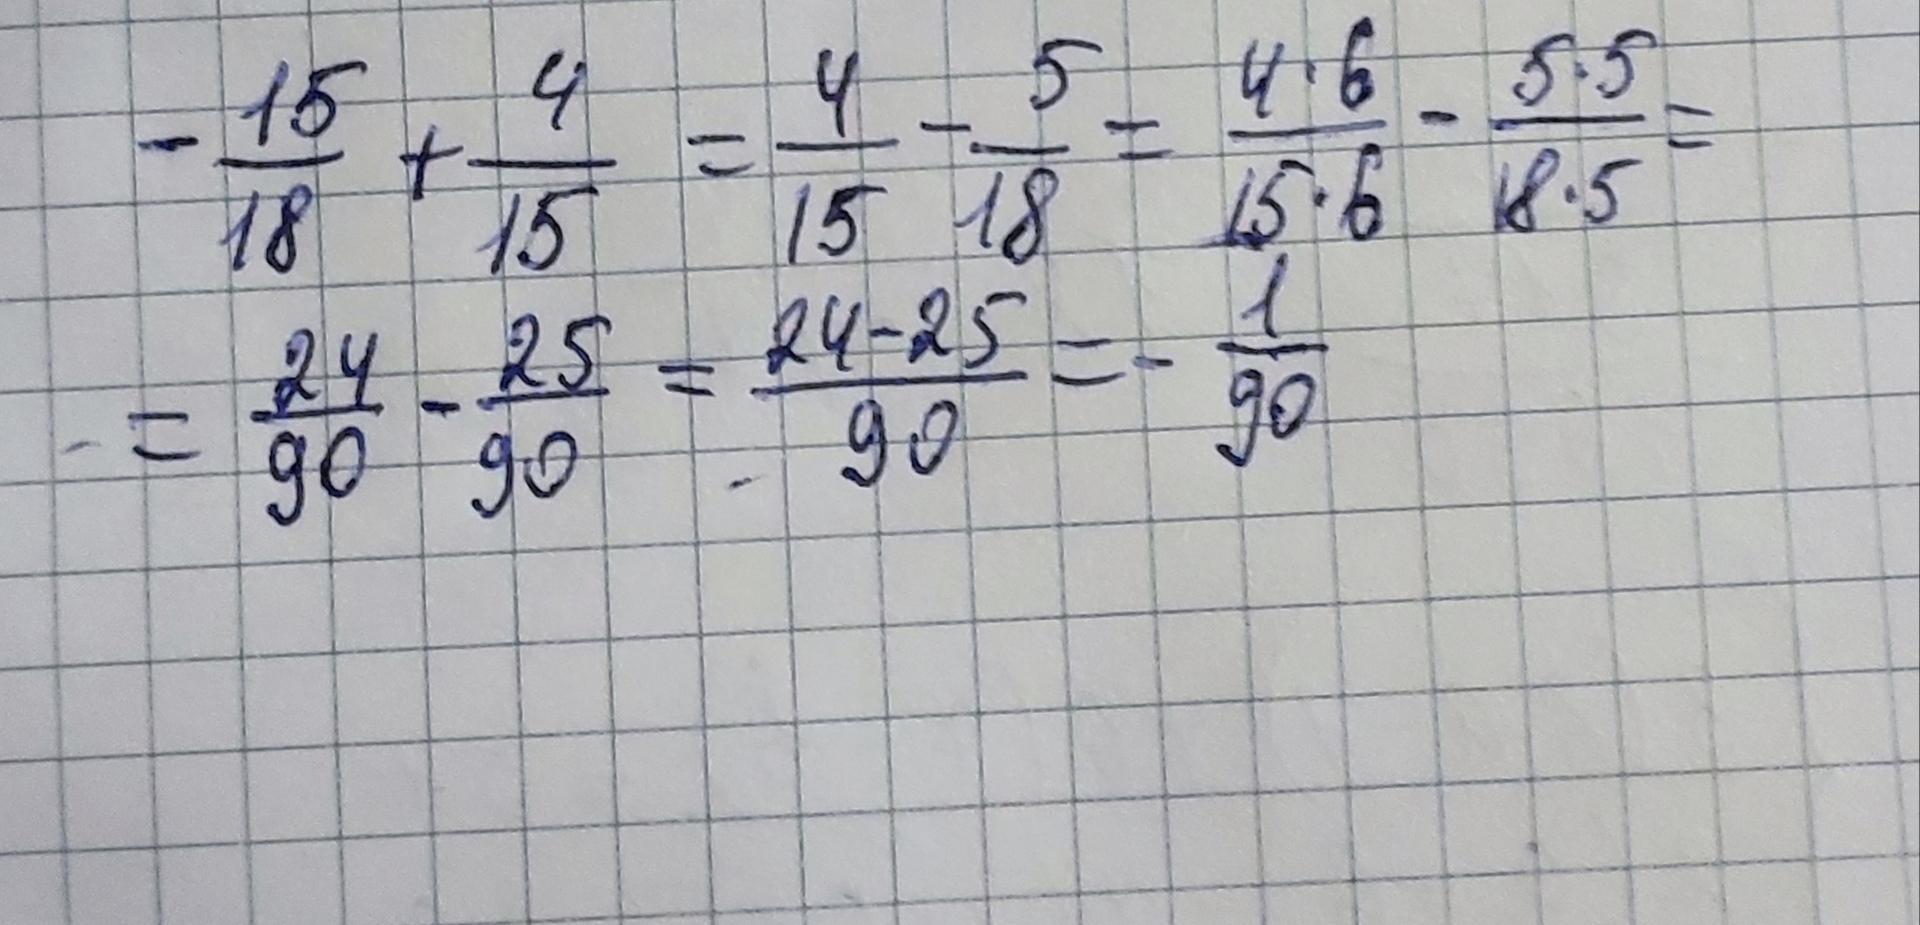 - 15/18 + 4/15 = 4/15 - 5/18 = 4·6/15·6 - 5·5/18·5 =
= 24/90 - 25/90 = 24-25/90 = - 1/90